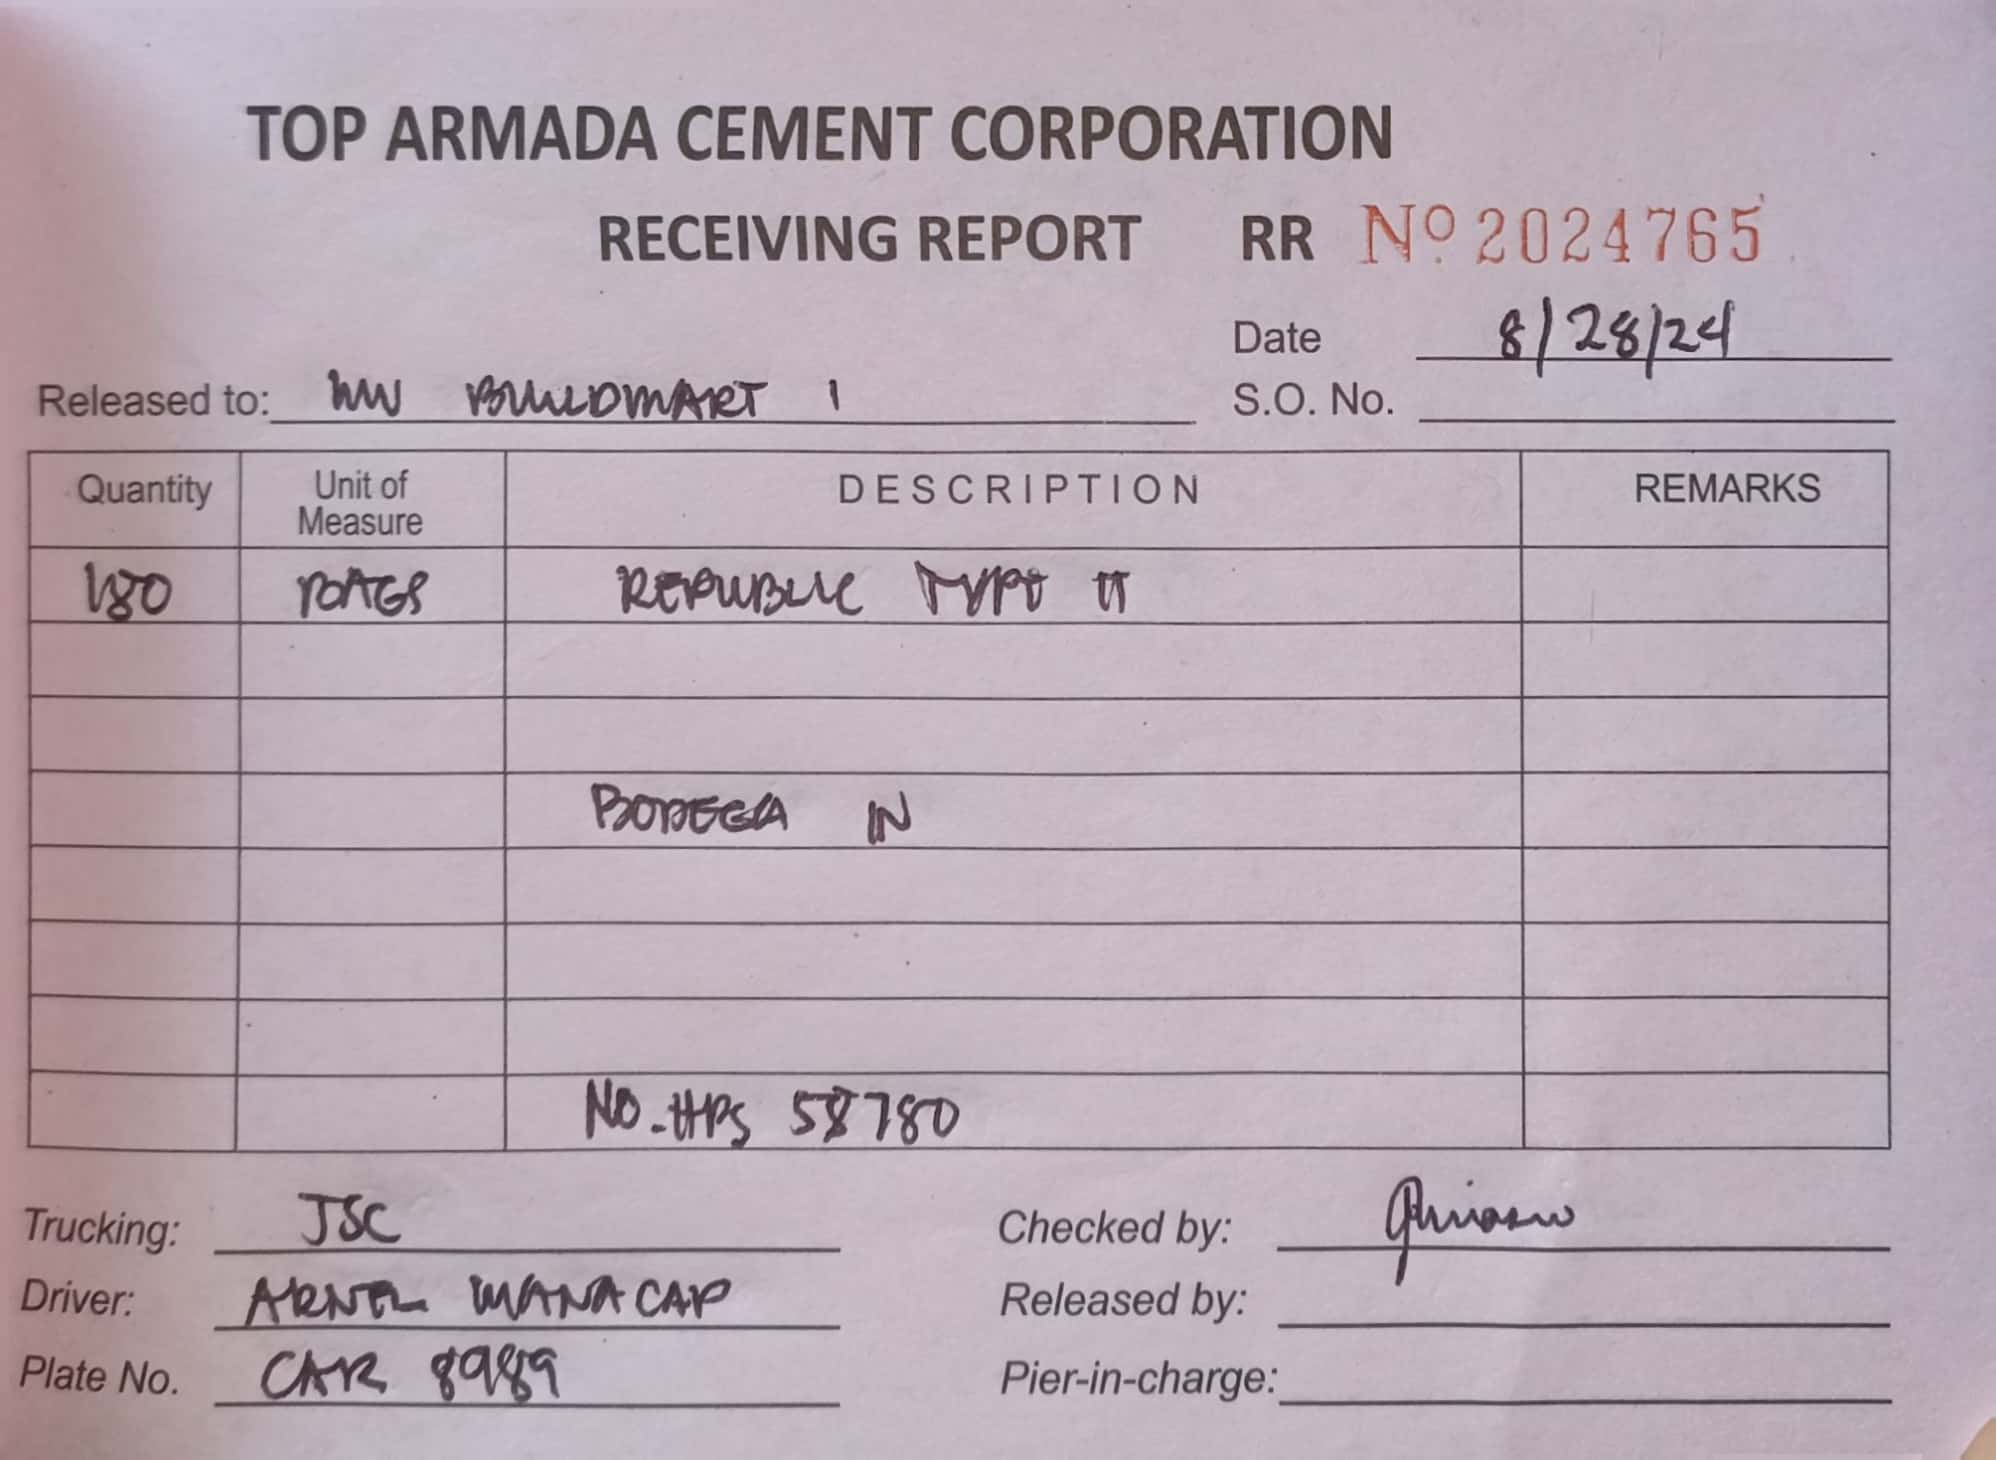 TOP ARMADA CEMENT CORPORATION
RECEIVING REPORT RR Nº 2024765
Date 8/28/24
Released to: BUILDMART 1 S.O. No.
Quantity Unit of Measure DESCRIPTION REMARKS
BAGS REPUBLIC TYPE II
BODEGA IN
NO. HPS 58780
Trucking: JSC Checked by:
Driver: ARNEL MANACAP Released by:
Plate No. CAR 8989 Pier-in-charge: